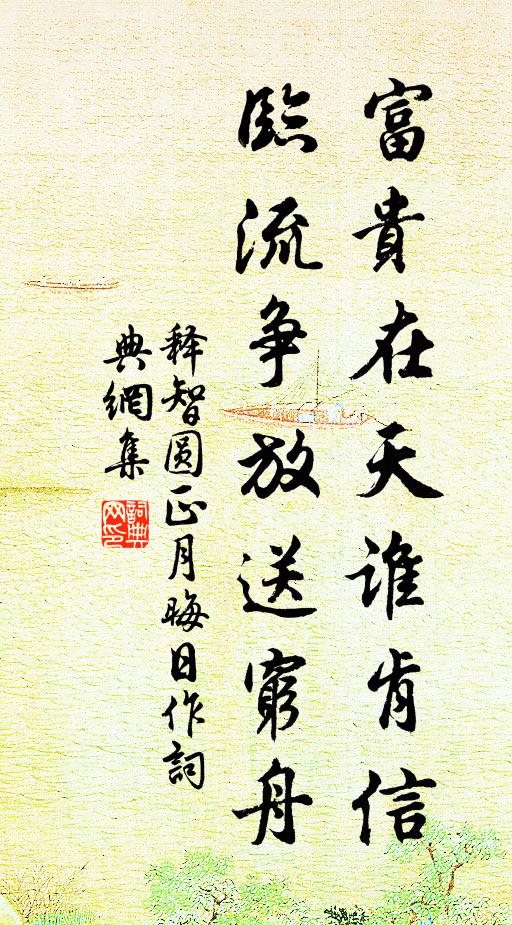 富貴在天誰肯信
臨流争放送窮舟
释智圆正月晦日作詞
典網集
詞典
网印